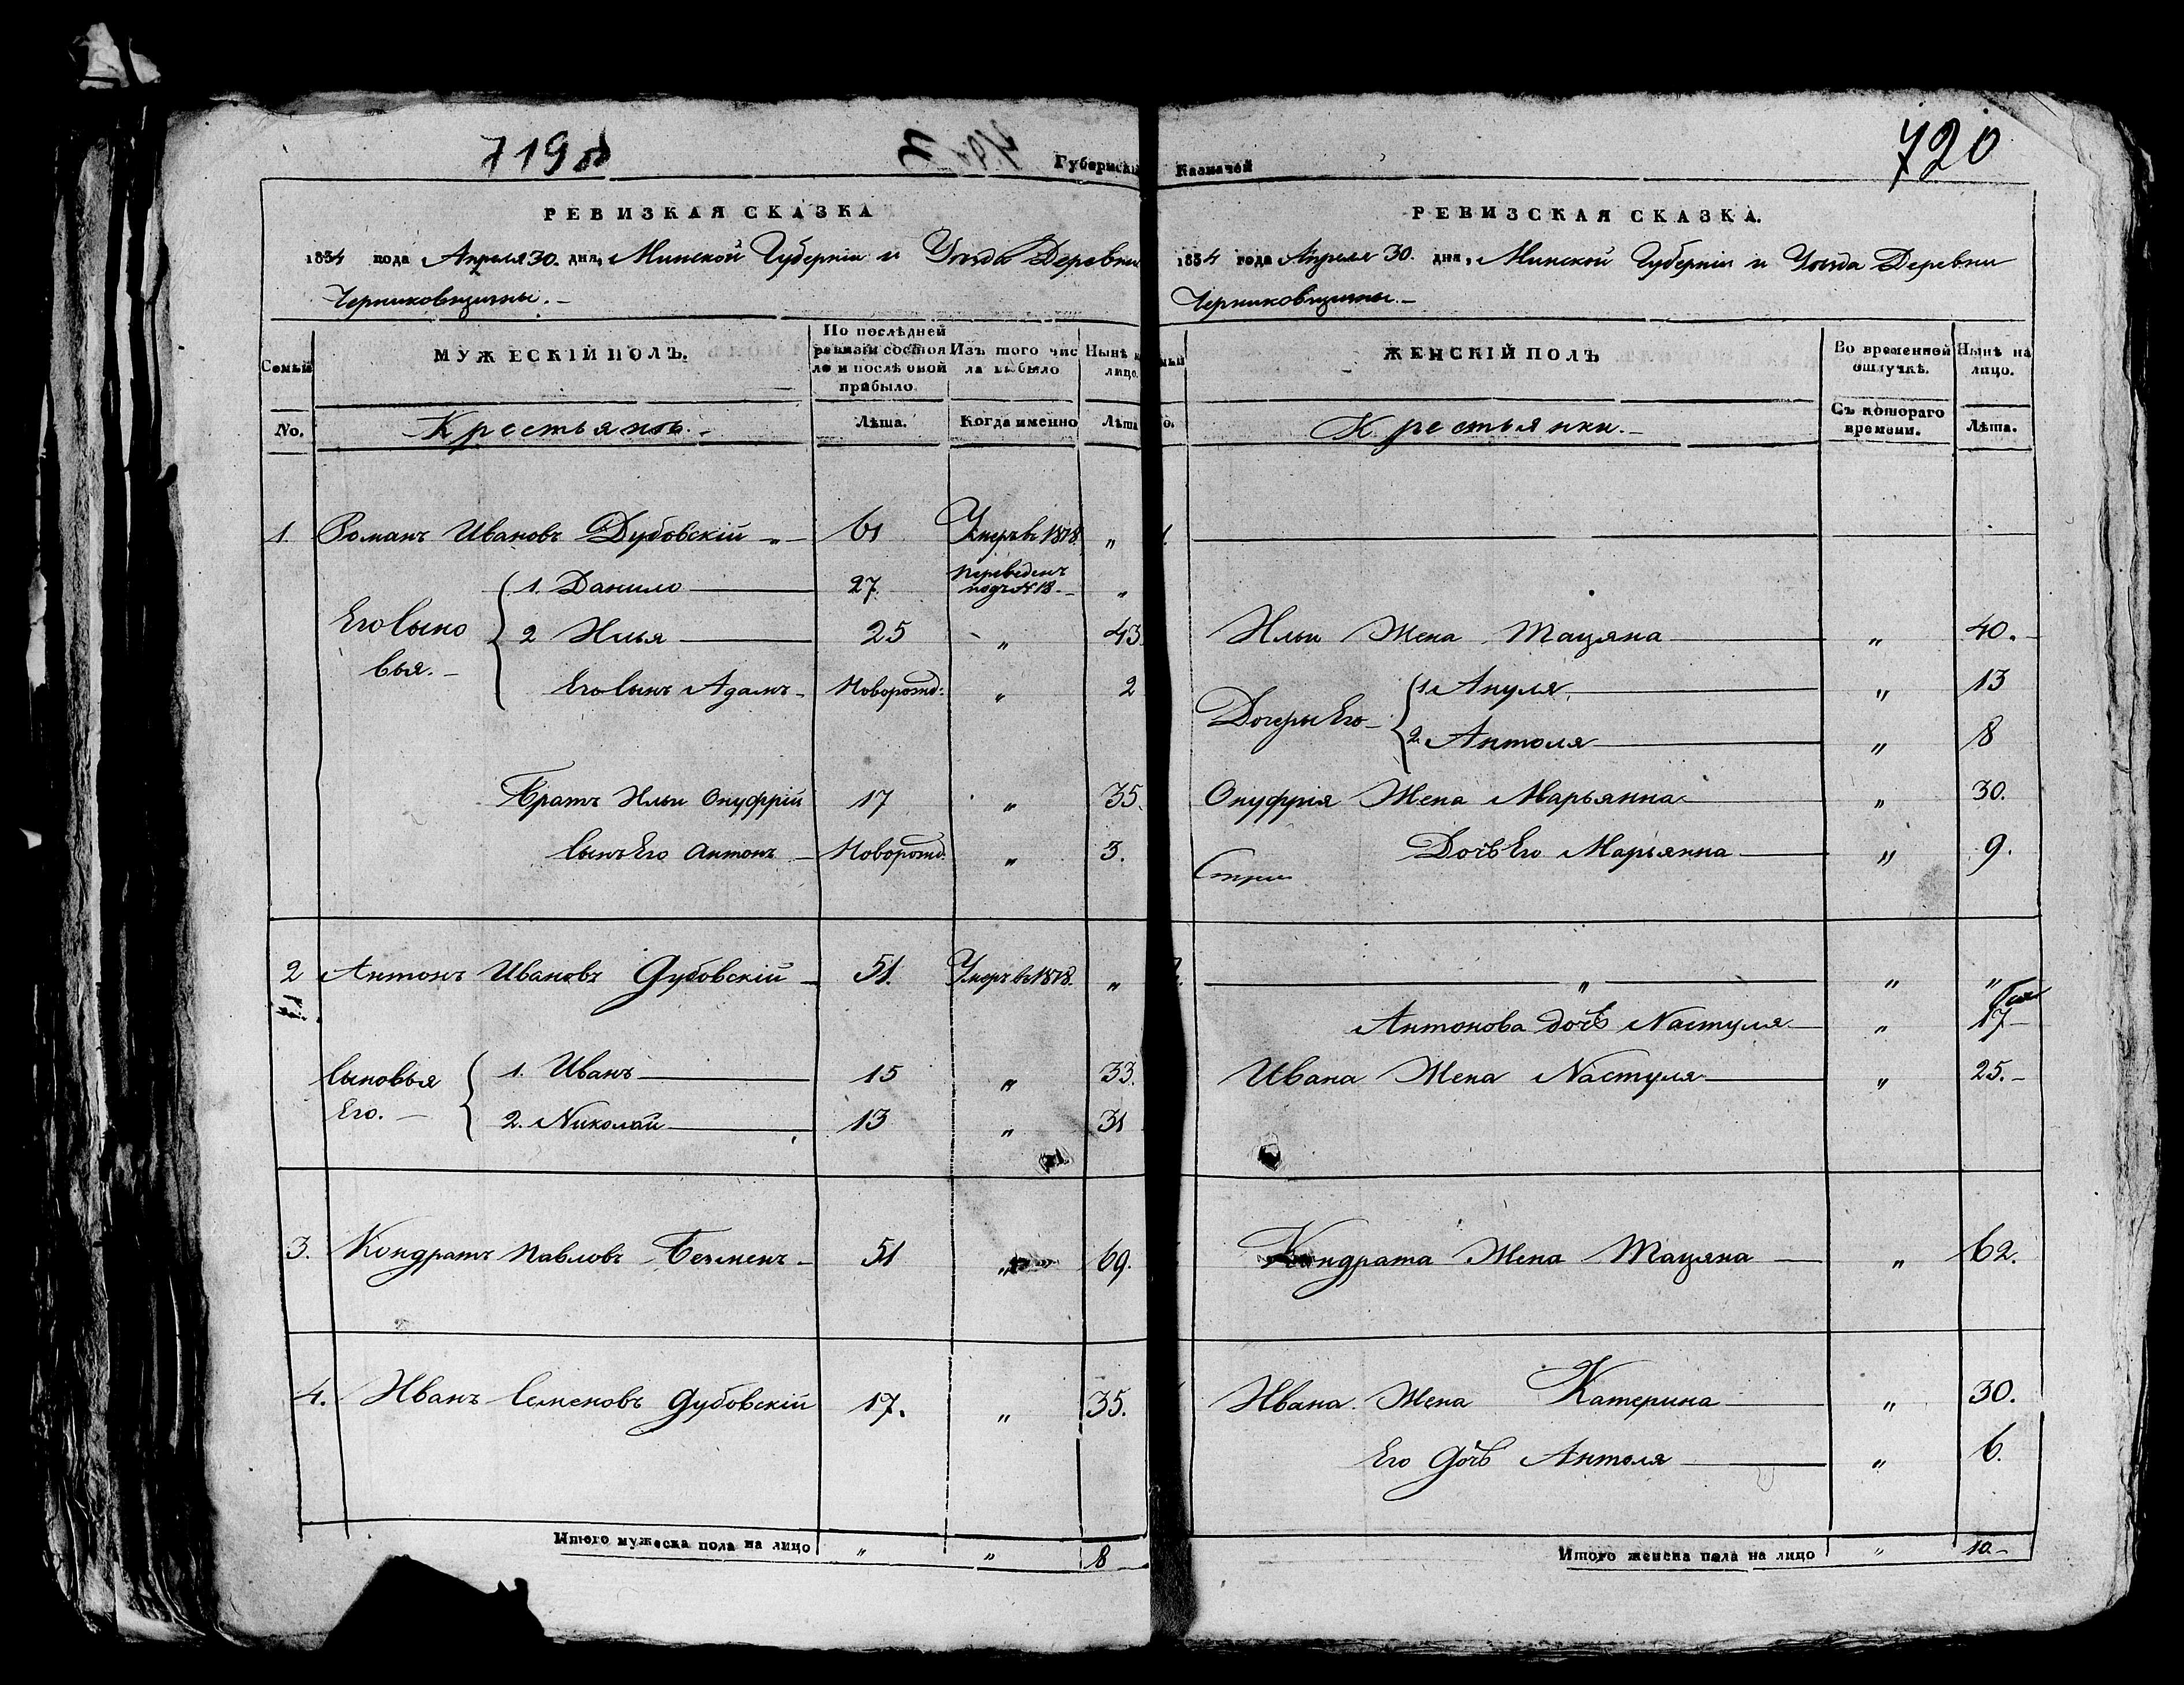 719 об
720
Губернскій Казначей
РЕВИЗКАЯ СКАЗКА
1834 года Апреля 30. дня, Минской Губерніи и Уѣзда Деревни
Черниковщизны. —
Семьи
МУЖЕСКІЙ ПОЛЪ.
По послѣдней
ревизіи состоя
ло и послѣ оной
прибыло.
Изъ того чис
ла выбыло
Нынѣ н
лицо.
No.
Крестьянъ. —
Лѣта.
Когда именно
Лѣта
1. Романъ Ивановъ Дубовскій „ — 61 Умеръ въ 1818. „
Его Сыно
вья. —
1. Данило 27. Переведенъ
подъ N 18. — „
2 Илья 25 „ 43.
Его Сынъ Адамъ — Новорожд: „ 2
Братъ Ильи Онуфрій 17 „ 35.
Сынъ Его Антонъ — Новорожд. „ 3.
2 Антонъ Ивановъ Дубовскій — 51. Умеръ въ 1818. „
Сыновья
Его. —
1. Иванъ 15 „ 33.
2. Николай 13 „ 31
3. Кондратъ Павловъ — 51 „ 69.
4. Иванъ Семеновъ Дубовскій 17. „ 35.
Итого мужеска пола на лицо „ „ 8 —
РЕВИЗСКАЯ СКАЗКА.
1834 года Апреля 30. дня, Минской Губерніи и Уѣзда Деревни
Черниковщизны. —
ЖЕНСКІЙ ПОЛЪ
Во временной
отлучкѣ.
Нынѣ на
лицо.
Съ котораго
времени.
Крестьянки. —
Лѣта.
Ильи Жена Тацяна „ 40. —
Дочеры Его —
1. Ануля „ 13
2. Антоля „ 8
Онуфрія Жена Марьянна „ 30.
Дочь Его Марьянна „ 9.
„ „ „
Антонова дочь Настуля „ 17 —
Ивана Жена Настуля „ 25. —
Кондрата Жена Тацяна — „ 62.
Ивана Жена Катерина „ 30.
Его дочь Антоля „ 6.
Итого женска пола на лицо „ 10. —